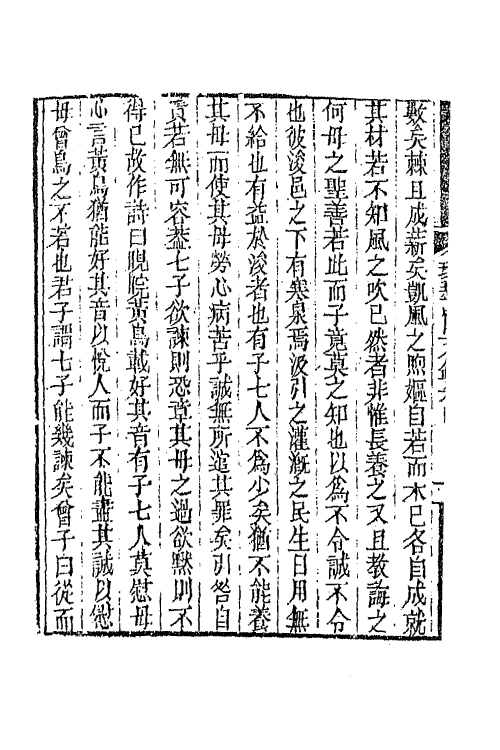 數矣棘且成薪矣凱風之煦嫗自若而木已各自成就
其材若不知風之吹已然者非惟長養之又且教誨之
何母之聖善若此而子竟莫之知也以為不令誠不令
也彼浚邑之下有寒泉焉汲引之灌溉之民生日用無
不給也有益於浚者也有子七人不為少矣猶不能養
其母而使其母勞心病苦乎誠無所逭其罪矣引咎自
責若無可容葢七子欲諫則恐章其母之過欲默則不
得已故作詩曰睍睆黃鳥載好其音有子七人莫慰母
心言黃鳥猶能好其音以悅人而子不能盡其誠以慰
母曾鳥之不若也君子謂七子能幾諫矣曾子曰從而